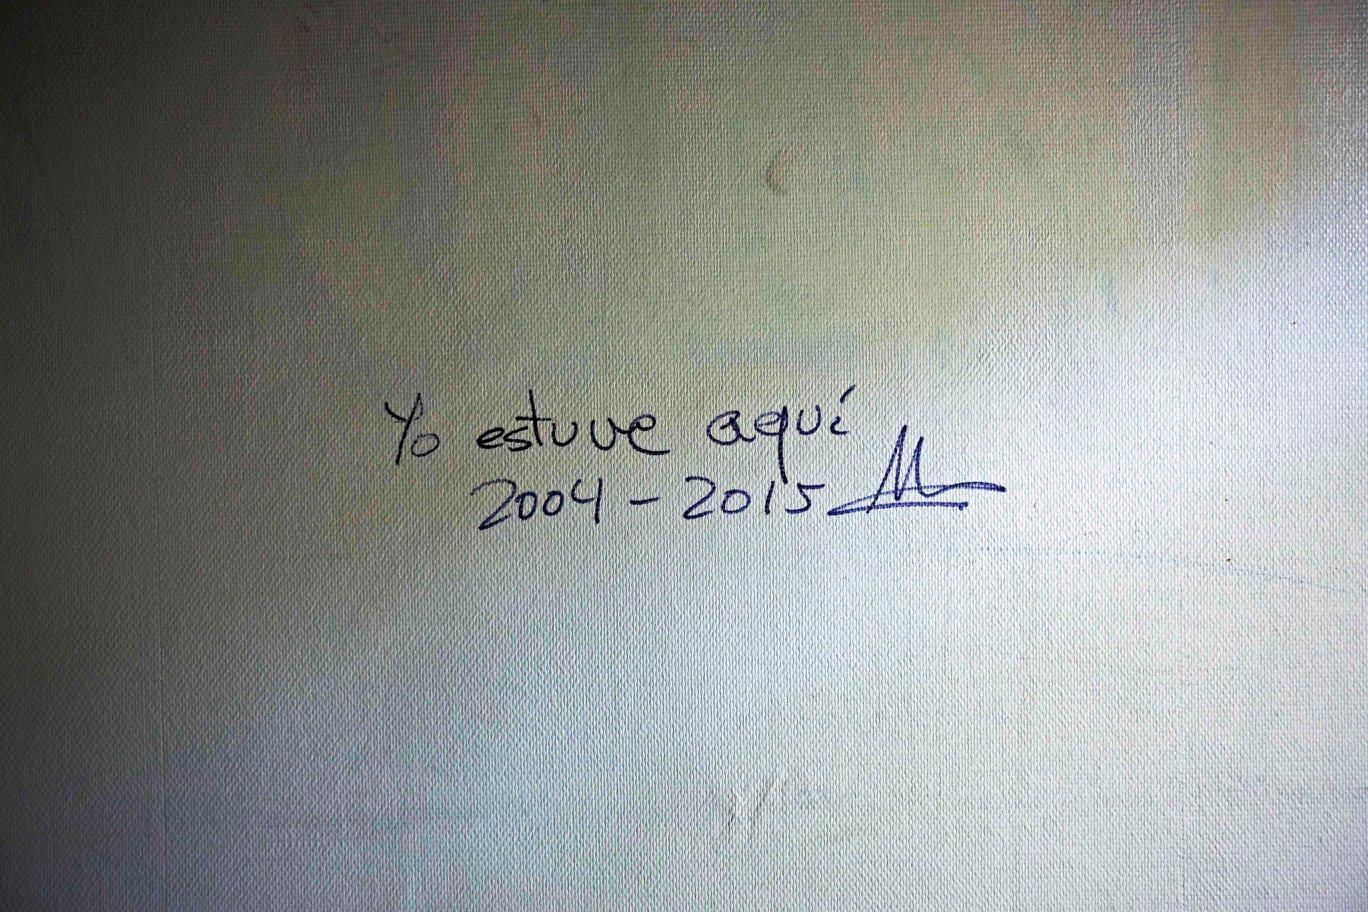 Yo estuve aquí
2004 - 2015